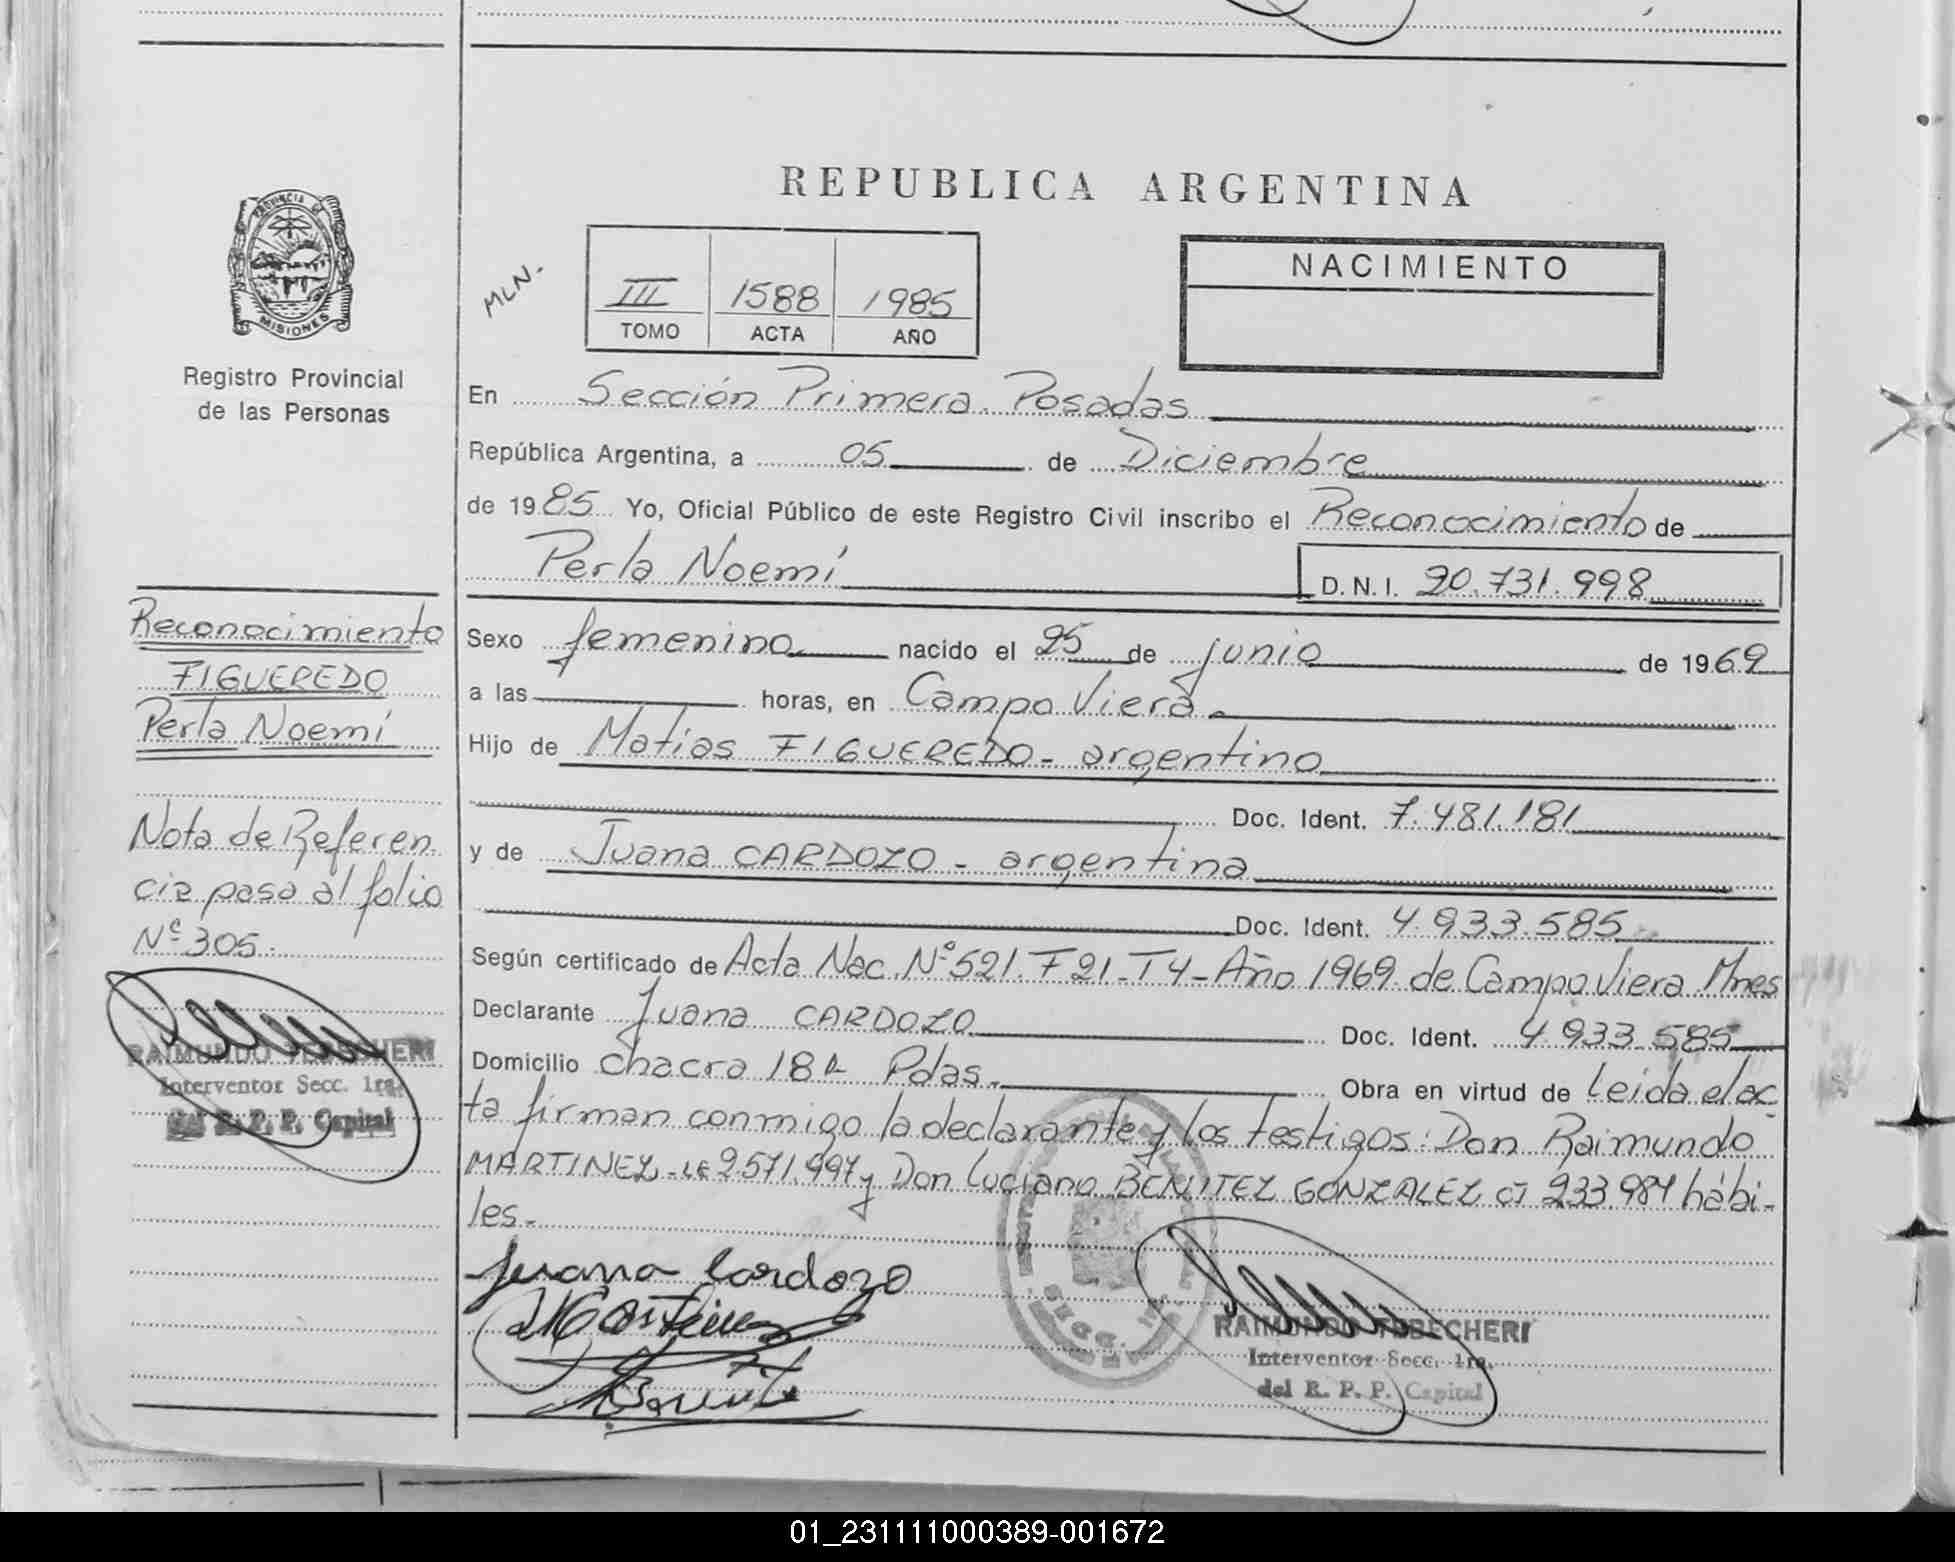 REPUBLICA ARGENTINA
PROVINCIA DE
MISIONES
Registro Provincial
de las Personas
MLN.-
III 1588 1985
TOMO ACTA AÑO
NACIMIENTO
En Sección Primera. Posadas
República Argentina, a 05 de Diciembre
de 1985 Yo, Oficial Público de este Registro Civil inscribo el Reconocimiento de
Perla Noemí D.N.I. 20.731.998
Sexo femenino nacido el 25 de junio de 1969
a las horas, en Campo Viera.
Hijo de Matías FIGUEREDO - argentino
Doc. Ident. 7.481.181
y de Juana CARDOZO - argentina
Doc. Ident. 4.933.585
Según certificado de Acta Nac. Nº 521. F 21 - T 4 - Año 1969 de Campo Viera Mnes
Declarante Juana CARDOZO Doc. Ident. 4.933.585
Domicilio chacra 182 Pdas. Obra en virtud de Leida el ac
ta firman conmigo la declarante y los testigos: Don Raimundo
MARTINEZ - LE 2.571.997 y Don Luciano BENITEZ GONZALEZ CI 233.984 hábi-
les.-
Reconocimiento
FIGUEREDO
Perla Noemí
Nota de Referen
cia pasa al folio
Nº 305.
RAIMUNDO TERECHERI
Interventor Secc. 1ra.
del R. P. P. Capital
Juana Cardozo
RAIMUNDO TERECHERI
Interventor Secc. 1ra.
del R. P. P. Capital
01_231111000389-001672